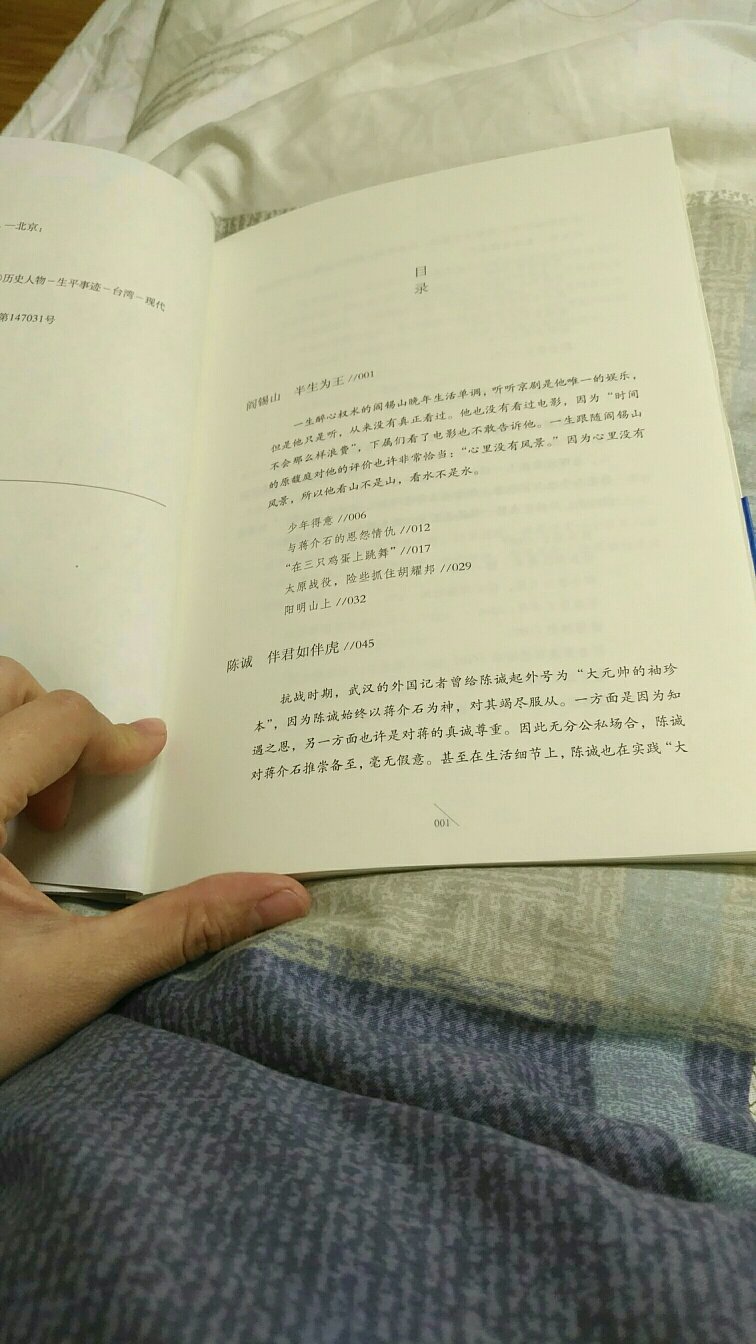 . —北京：
历史人物－生平事迹－台湾－现代
第147031号
目
录
阎锡山 半生为王 //001
一生醉心权术的阎锡山晚年生活单调，听听京剧是他唯一的娱乐，
但是他只是听，从来没有真正看过。他也没有看过电影，因为“时间
不会那么样浪费”，下属们看了电影也不敢告诉他。一生跟随阎锡山
的原馥庭对他的评价也许非常恰当：“心里没有风景。”因为心里没有
风景，所以他看山不是山，看水不是水。
少年得意 //006
与蒋介石的恩怨情仇 //012
“在三只鸡蛋上跳舞” //017
太原战役，险些抓住胡耀邦 //029
阳明山上 //032
陈诚 伴君如伴虎 //045
抗战时期，武汉的外国记者曾给陈诚起外号为“大元帅的袖珍
本”，因为陈诚始终以蒋介石为神，对其竭尽服从。一方面是因为知
遇之恩，另一方面也许是对蒋的真诚尊重。因此无分公私场合，陈诚
对蒋介石推崇备至，毫无假意。甚至在生活细节上，陈诚也在实践“大
001